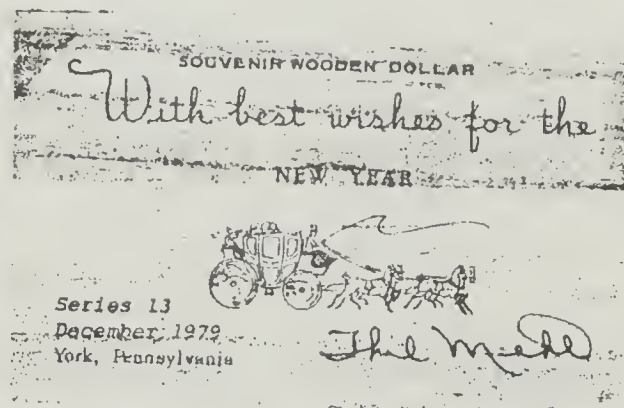 SOUVENIR WOODEN DOLLAR
With best wishes for the
NEW YEAR
Series 13
December 1979
York, Pennsylvania